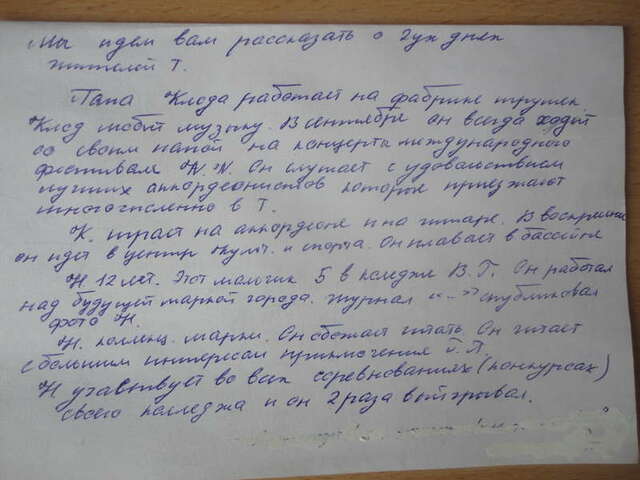 Мы идем вам рассказать о 2ух днях
жителей Т.
Папа Клода работает на фабрике игрушек.
Клод любит музыку. В сентябре он всегда ходит
со своим папой на концерты международного
фестиваля N.N. Он слушает с удовольствием
лучших аккордеонистов которые приезжают
многочисленно в Т.
К. играет на аккордеоне и на гитаре. В воскресенье
он идет в центр культ. и спорта. Он плавает в бассейне
Н 12 лет. Этот мальчик 5 в колледже В.Г. Он работал
над будущей маркой города. Журнал "..." опубликовал
фото Н.
Н. коллекц. марки. Он обожает читать. Он читает
с большим интересом приключения
Н участвует во всех соревнованиях (конкурсах)
своего колледжа и он 2 раза выигрывал.